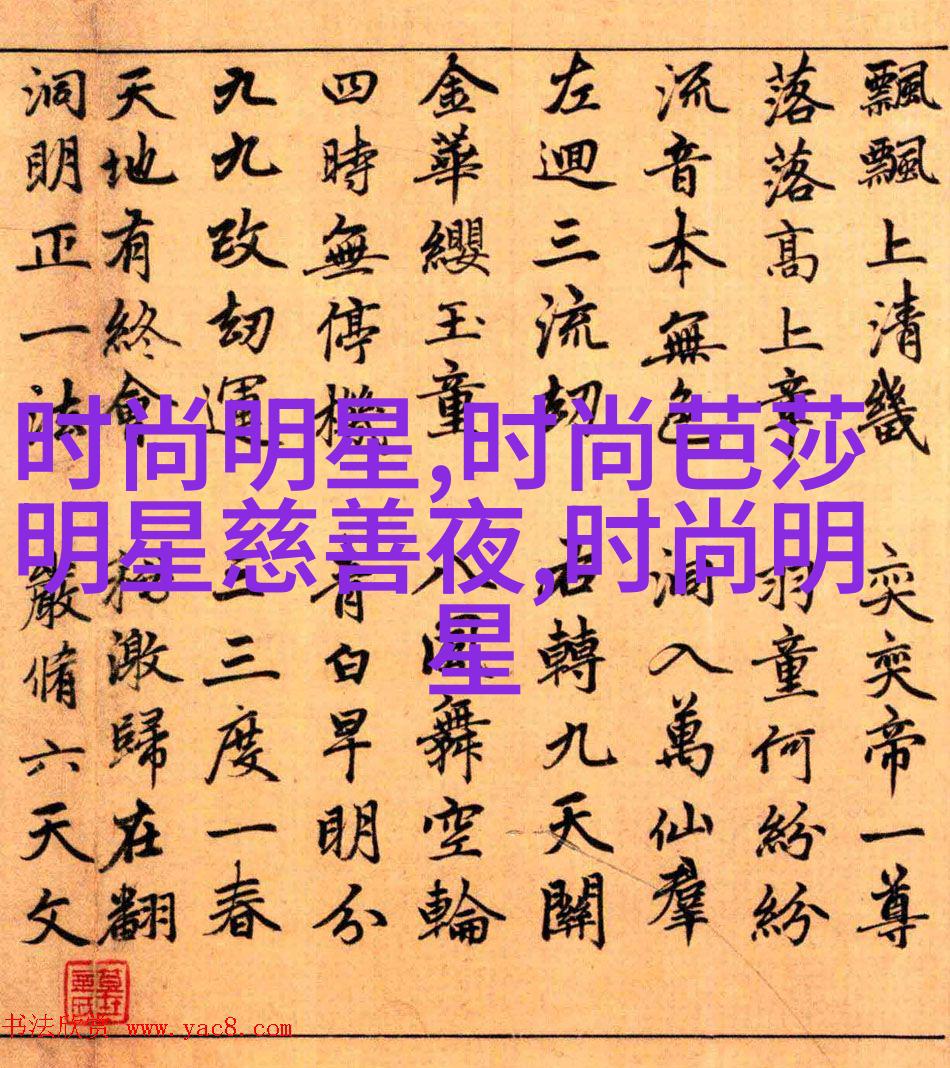 飄飄上清畿 奕奕帝一尊
落落高上章 羽童何紛紛
流音本無色 入萬仙羣
左迴三流劫 右轉九天關
金華纓玉童 八風舞空輪
四時無停機 青白早明分
九九改劫運 三三度一春
天地有終會 激歸在翻
洞明正一法 嚴脩六天文
时尚明星,时尚芭莎
明星慈善夜,时尚明
星
书法欣赏 www.yac8.com